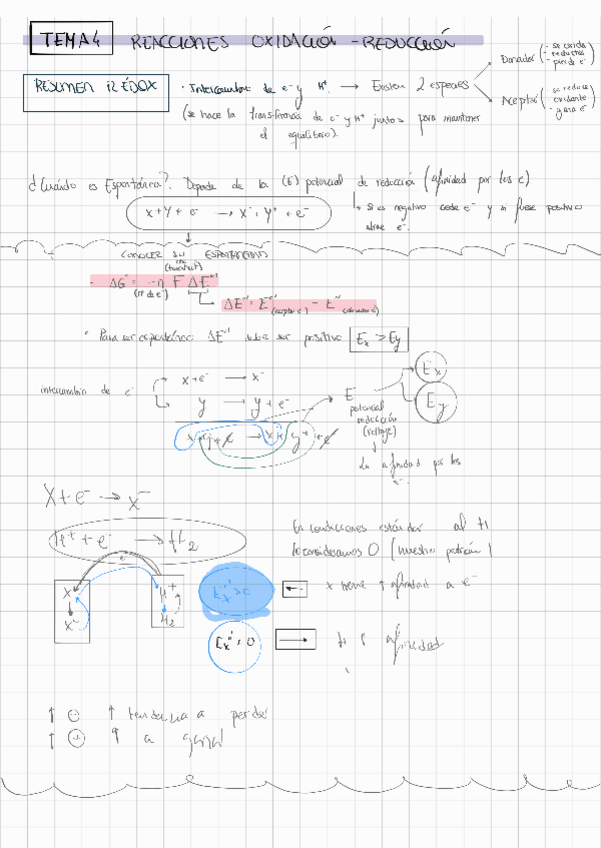 TEMA 4 REACCIONES OXIDACIÓN - REDUCCIÓN
RESUMEN REDOX
· Intercambio de e⁻ y H⁺ → Existen 2 especies
Donador (- se oxida
- reductor
- pierde e⁻
Aceptor (- se reduce
- oxidante
- gana e⁻
(se hace la transferencia de e⁻ y H⁺ juntos para mantener
el equilibrio).
¿Cuándo es Espontánea?. Depende de la (E) potencial de reducción (afinidad por los e)
x + y + e⁻ → x⁻ + y⁺ + e⁻
↳ si es negativo cede e⁻ y si fuese positivo
atrae e⁻.
CONOCER SU
ΔG°' = -n F ΔE°'
(nº de e⁻)
ΔE°' = E°' (aceptor e⁻) - E°'
· Para ser espontánea ΔE°' debe ser positivo Ex > Ey
intercambio de e⁻
x + e⁻ → x⁻
y → y + e⁻
E
potencial
reducción
(voltaje)
Ex
Ey
La afinidad por los
e⁻.
X + e⁻ → x⁻
H⁺ + e⁻ → H₂
En condiciones estándar al H
lo consideramos 0 (nuestro patrón)
e⁻
x
x⁻
H⁺
H₂
Ex°' > 0
← x tiene ↑ afinidad a e⁻
→ H ↑ afinidad
↑ ⊖ ↑ tendencia a perder
↑ ⊕ ↑ a ganar